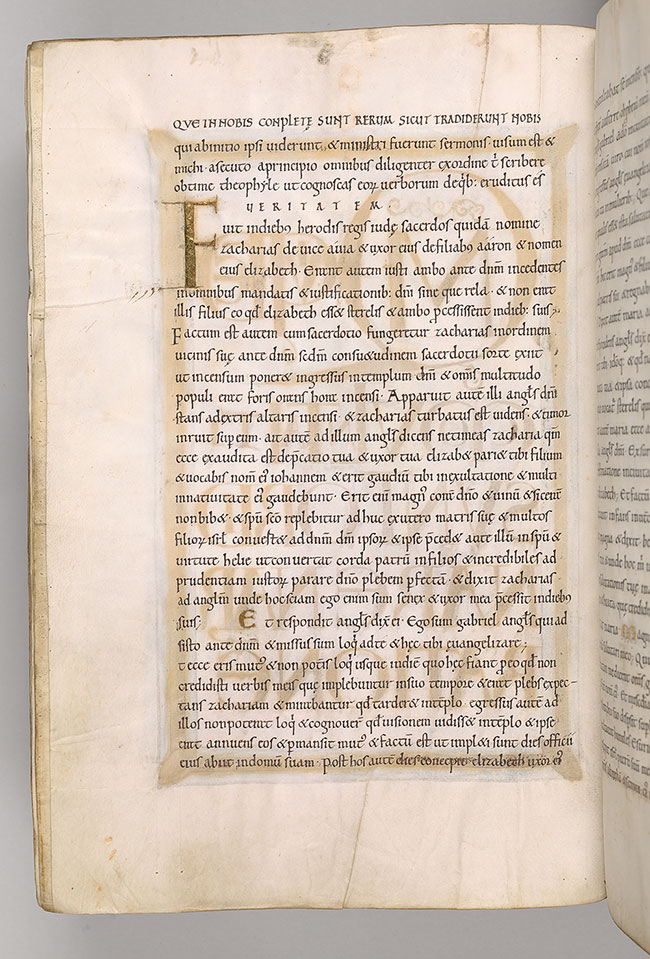 QVE IN NOBIS CONPLETĘ SUNT RERUM SICUT TRADIDERUNT NOBIS
qui ab initio ipsi viderunt, & ministri fuerunt sermonis. visum est &
michi asecuto a principio omnibus diligenter ex ordine t̄ scribere
obtime theophyle ut cognoscas eoꝝ verborum de qb; eruditus es
VERITATEM.
Fuit in dieb; herodis regis iudę sacerdos quidā nomine
zacharias de vice avia & uxor eius de filiab; aaron & nomen
eius elizabeth. Erant autem iusti ambo ante dn̄m incedentes
in omnibus mandatis & iustificationib; dn̄i sine querela. & non erat
illis filius eo qd̄ elizabeth ess& sterelis & ambo p̄cessissent in dieb; suis;
Factum est autem cum sacerdotio fungeretur zacharias in ordinem
vicinis suę ante dn̄m scd̄m consu&udinem sacerdotii sorte exiit
ut incensum poner& ingressus in templum dn̄i & omīs multitudo
populi erat foris orans hora incensi. Apparuit autē illi angl̄s dn̄i
stans a dextris altaris incensi. & zacharias turbatus est videns. & timor
inruit sup eum. ait autē ad illum angl̄s dicens ne timeas zacharia qm̄
ecce exaudita est dep̄catio tua & uxor tua elizab& pari& tibi filium
& vocabis nom̄ ei' iohannem & erit gaudiū tibi in exultatione & multi
in nativitate ei' gaudebunt. Erit eni̅ magn' cora̅ dn̄o & vinū & sicera̅
non bib& & sp̄u sc̄o replebitur adhuc ex utero matris suę & multos
filioꝝ isrl̄ convert& ad dn̄m dm̄ ipsoꝝ & ipse p̄ced& ante illū in sp̄u &
virtute helie ut convertat corda patrū in filios & incredibiles ad
prudentiam iustoꝝ parare dn̄o plebem p̄fectā. & dixit zacharias
ad angl̄m unde hoc sciam ego enim sum senex & uxor mea p̄cessit in dieb;
suis. Et respondit angl̄s dix' ei. Ego sum gabriel angl̄s qui ad
sisto ante dn̄m & missus sum loq̄ ad te & hęc tibi evangelizare;
& ecce eris mut' & non potis loq̄ usque in diē quo hęc fiant p̄ eo qd̄ non
credidisti verbis meis que implebuntur in suo tempore & erat plebs expec-
tans zachariam & mirabantur qd̄ tarder& in tēplo. egressus autē ad
illos non poterat loq̄ & cognover̅ qd̄ visionem vidiss& in tēplo & ipse
erat annuens eos & p̄mansit mut' & factū est ut impl&i sunt dies officii
eius abiit in domū suam. Post hos autē dies concepit elizabeth uxor ei'